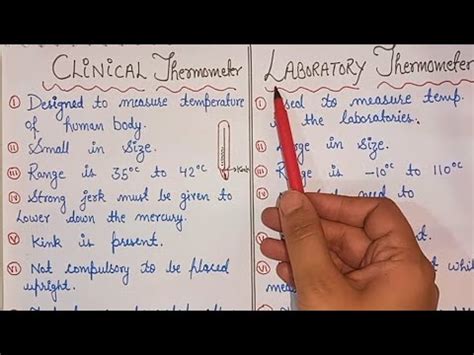 CLINICAL Thermometer
(I) Designed to measure temperature
of human body.
(II) Small in Size.
(III) Range is 35°C to 42°C
Kink
(IV) Strong jerk must be given to
Lower down the mercury.
(V) Kink is present.
(VI) Not compulsory to be placed
upright.
LABORATORY Thermometer
(I) to measure temp.
the laboratories.
(II) in size.
(III) is -10°C to 110°C
need to
(V)
(VI) whil